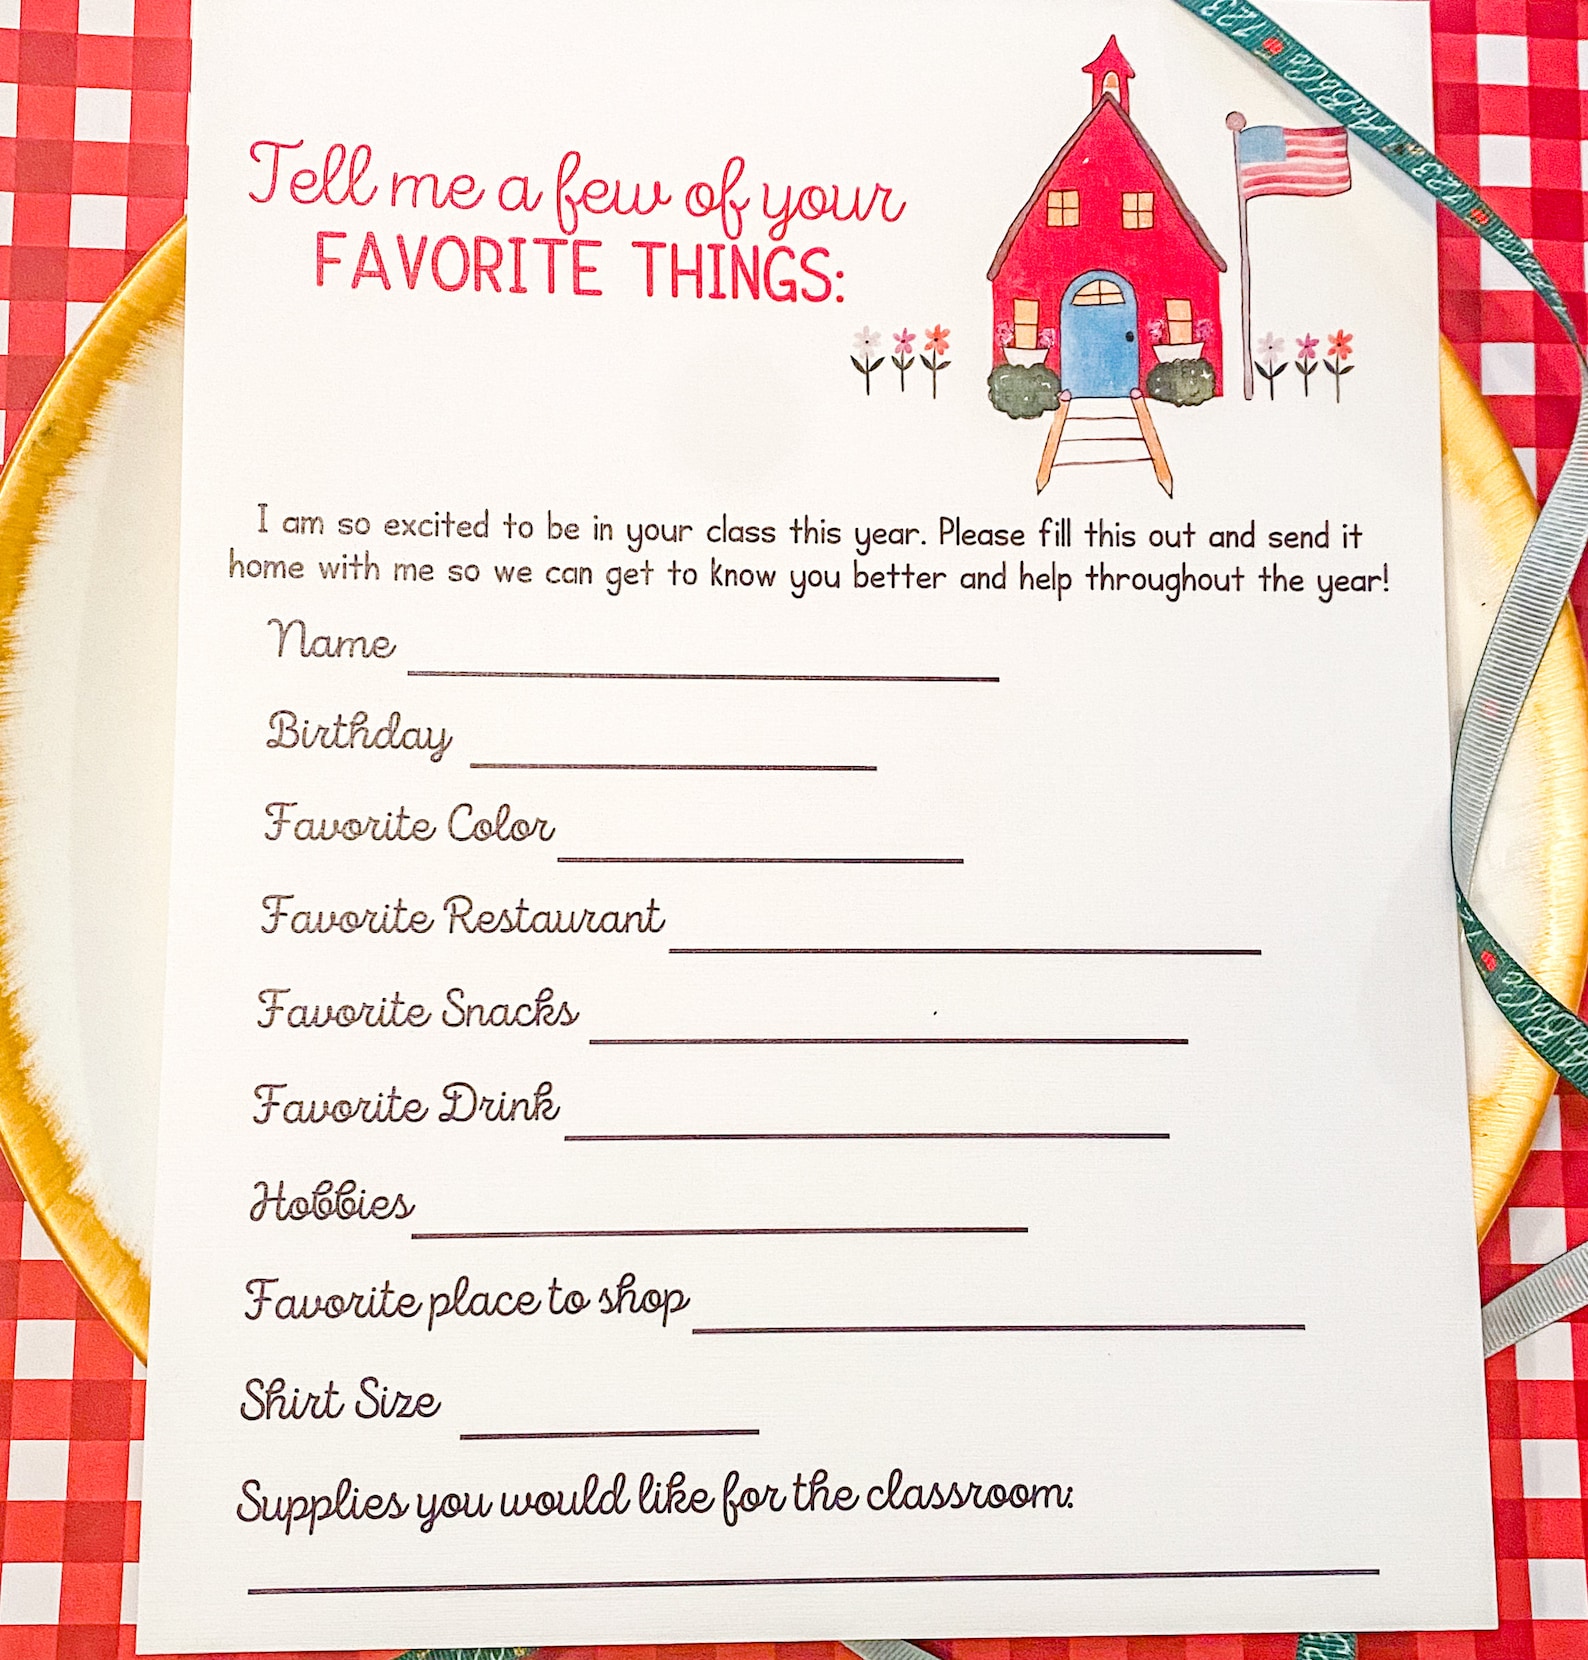 Tell me a few of your
FAVORITE THINGS:
I am so excited to be in your class this year. Please fill this out and send it
home with me so we can get to know you better and help throughout the year!
Name
Birthday
Favorite Color
Favorite Restaurant
Favorite Snacks
Favorite Drink
Hobbies
Favorite place to shop
Shirt Size
Supplies you would like for the classroom:
123
AaBbCc
123
AaBbCc